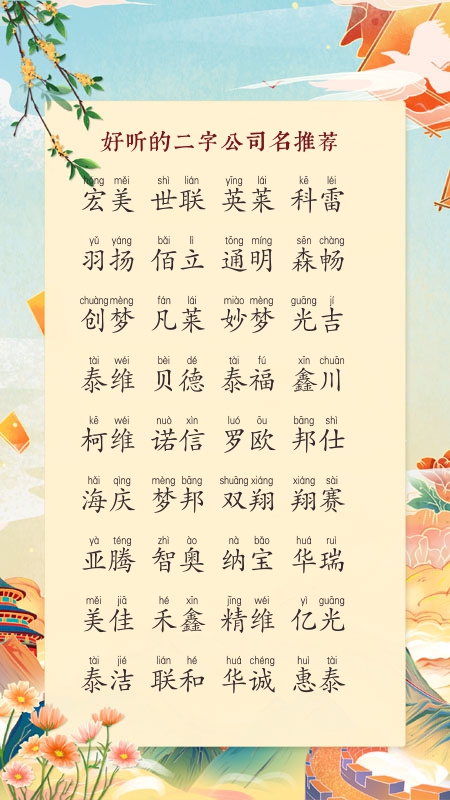 好听的二字公司名推荐
hóng měi shì lián yīng lái kē léi
宏美 世联 英莱 科雷
yǔ yáng bǎi lì tōng míng sēn chàng
羽扬 佰立 通明 森畅
chuàng mèng fán lái miào mèng guāng jí
创梦 凡莱 妙梦 光吉
tài wéi bèi dé tài fú xīn chuān
泰维 贝德 泰福 鑫川
kē wéi nuò xìn luó ōu bāng shì
柯维 诺信 罗欧 邦仕
hǎi qìng mèng bāng shuāng xiáng xiáng sài
海庆 梦邦 双翔 翔赛
yà téng zhì ào nà bǎo huá ruì
亚腾 智奥 纳宝 华瑞
měi jiā hé xīn jīng wéi yì guāng
美佳 禾鑫 精维 亿光
tài jié lián hé huá chéng huì tài
泰洁 联和 华诚 惠泰